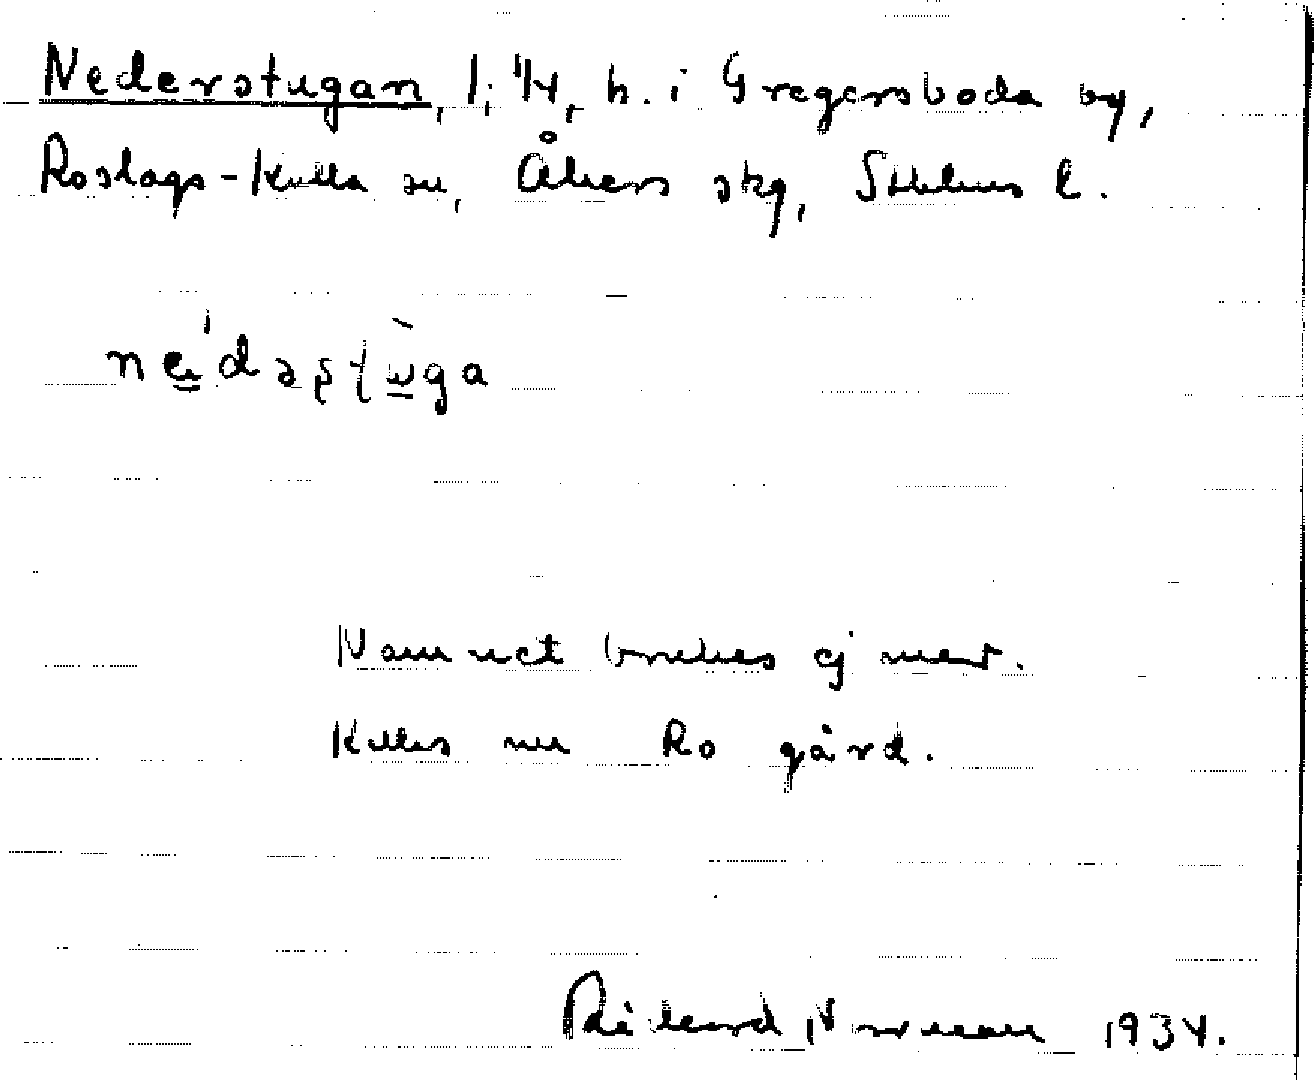 Nederstugan, l, 1/4, h. i Gregersboda by,
Roslags-Kulla sn, Åkers skg, Sthlms l.
nedəʂʈùga
Namnet brukes ej mer.
Kalles nu Ro gård.
Rikard Norman 1934.